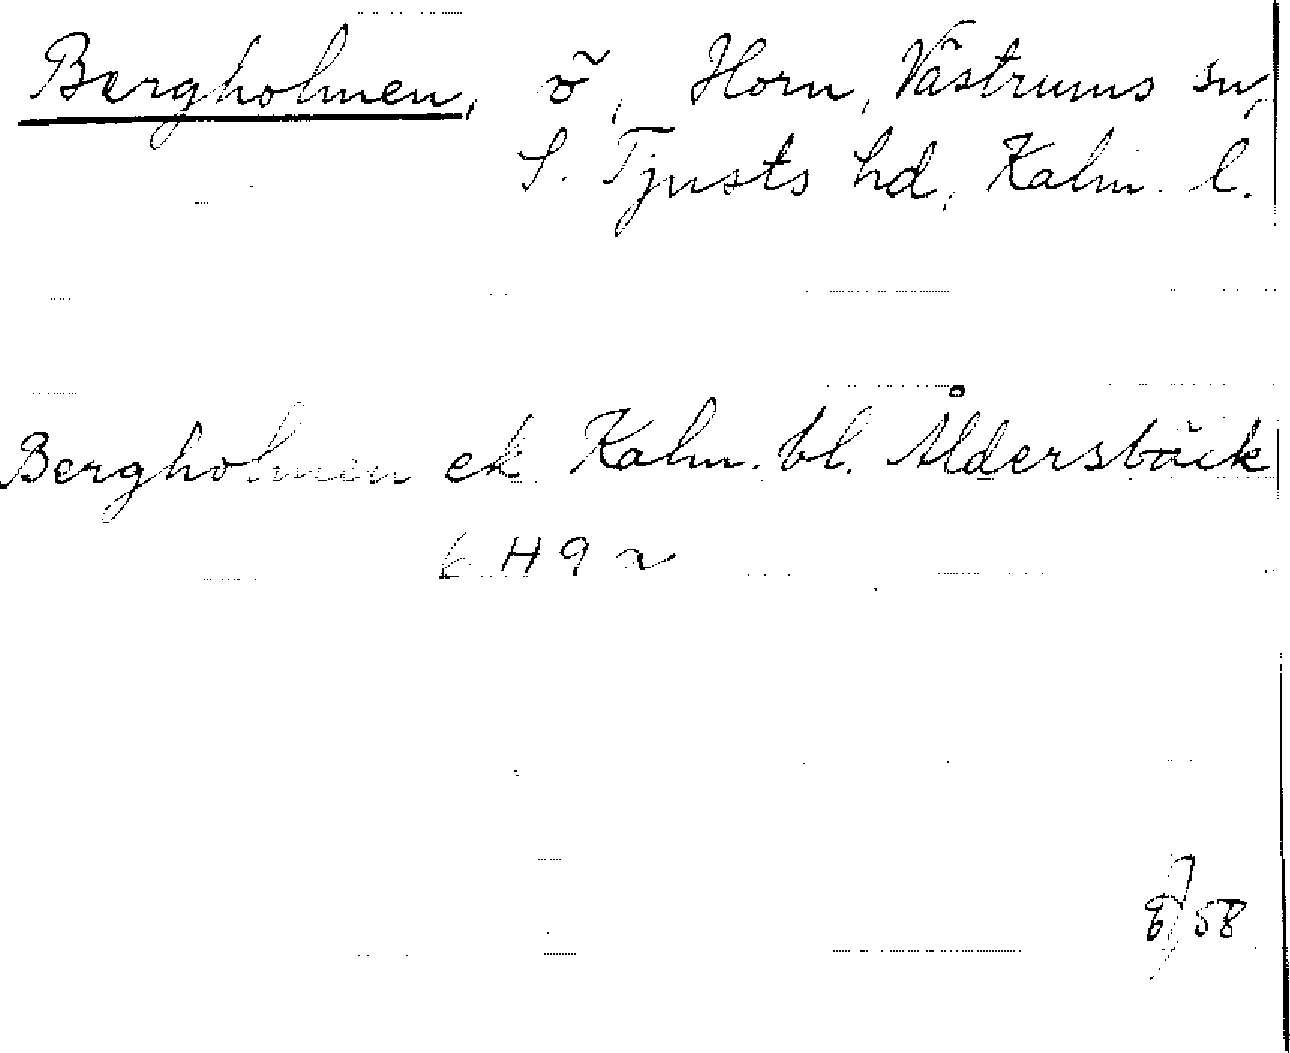 Bergholmen, ö, Horn, Västrums sn,
S. Tjusts hd, Kalm. l.
Bergholmen ek. Kalm. bl. Åldersbäck
6 H 9 
58